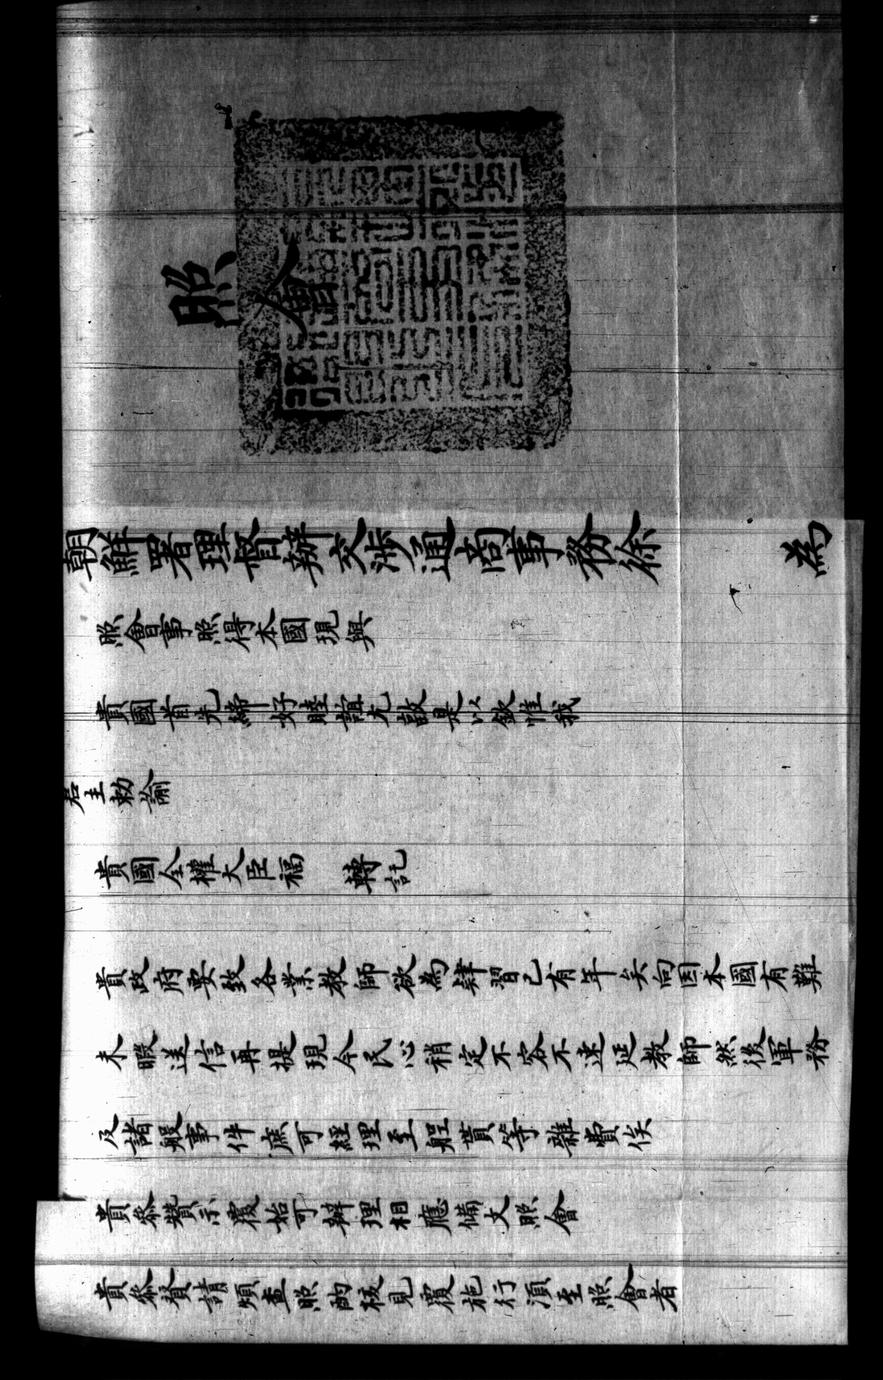 照會
朝鮮署理督辦交涉通商事務徐 為
照會事照得本國現與
貴國首先締好睦誼尤敦是以欽惟我
君主勅諭
貴國全權大臣福 轉託
貴政府要致各業教師欲為肄習已有年矣向因本國有難
未暇送信再提現今民心稍定不容不速延教師然後軍務
及諸般事件庶可經理至艃貲等雜費俟
貴參贊示覆始可辦理相應備文照會
貴參贊請煩查照酌核見覆施行須至照會者